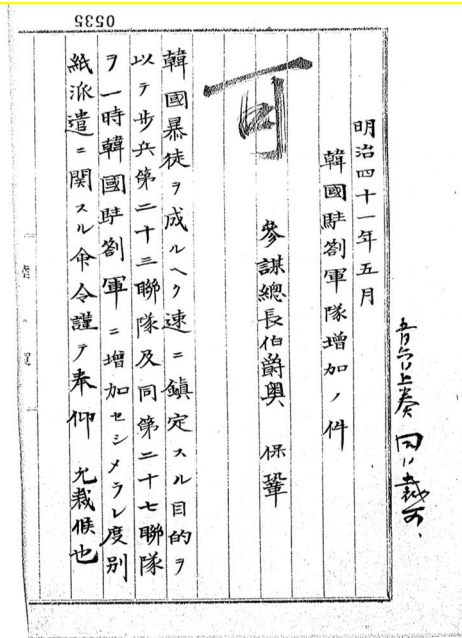 0535
五月六日上奏 同日裁可、
明治四十一年五月
韓國駐劄軍隊增加ノ件
參謀總長伯爵奧 保鞏
可
韓國暴徒ヲ成ルヘク速ニ鎮定スル目的ヲ
以テ歩兵第二十三聯隊及同第二十七聯隊
ヲ一時韓國駐劄軍ニ增加セシメラレ度別
紙派遣ニ関スル命令謹テ奉仰 允裁候也